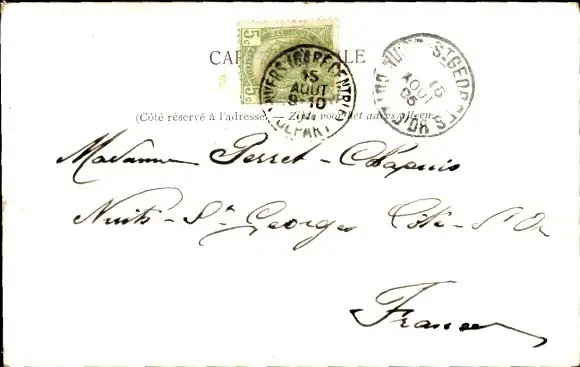 CARTE POSTALE
5c 5c
ANVERS (GARE CENTRALE)
15
AOUT
9-10
DEPART
NUITS-ST GEORGES
15
AOUT
05
CÔTE D'OR
(Côté réservé à l'adresse. — Zijde voor het adres alleen.
Madame Perret-Chapuis
Nuits-St Georges Côte-d'Or
France